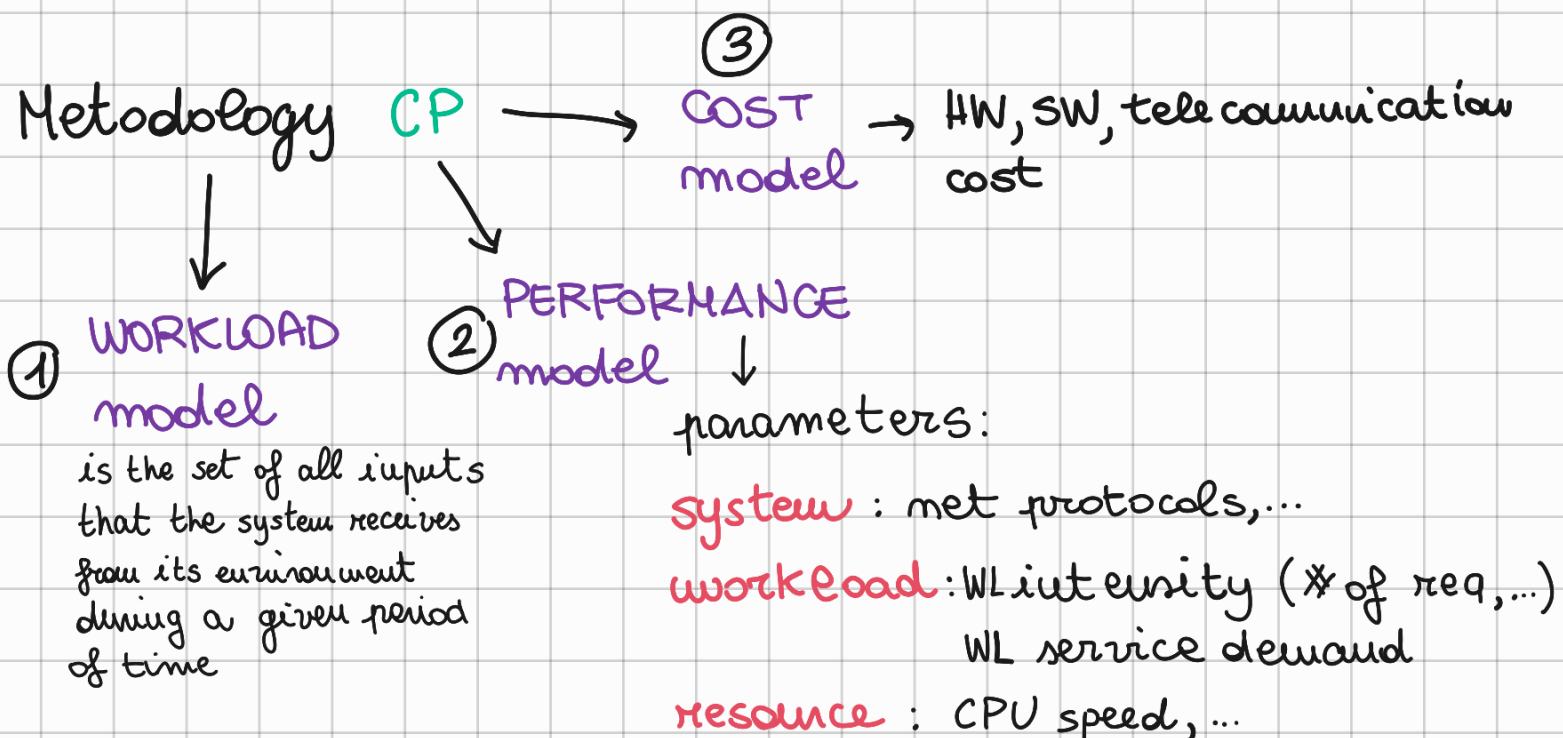 ③
Metodology CP → COST → HW, SW, telecommunication
model cost
① WORKLOAD
model
is the set of all inputs
that the system receives
from its environment
during a given period
of time
② PERFORMANCE
model
parameters:
system : net protocols,...
workload : WL intensity (# of req,...)
WL service demand
resource : CPU speed,...